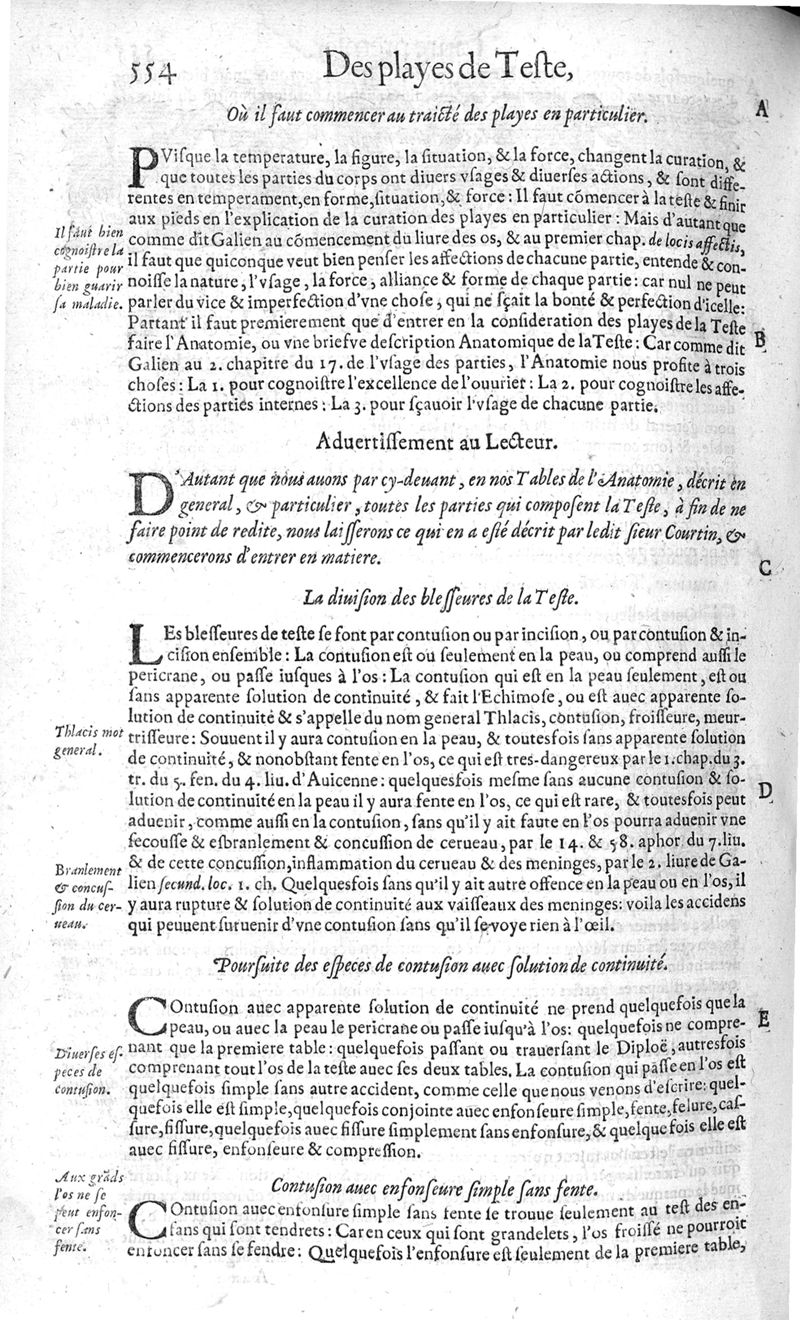 554 Des playes de Teste,
Où il faut commencer au traicté des playes en particulier.
A
PVisque la temperature, la figure, la situation, & la force, changent la curation, &
que toutes les parties du corps ont diuers vsages & diuerses actions, & sont diffe-
rentes en temperament, en forme, situation, & force : Il faut cōmencer à la teste & finir
aux pieds en l'explication de la curation des playes en particulier : Mais d'autant que
comme dit Galien au cōmencement du liure des os, & au premier chap. de locis affectis,
il faut que quiconque veut bien penser les affections de chacune partie, entende & con-
noisse la nature, l'vsage, la force, alliance & forme de chaque partie : car nul ne peut
parler du vice & imperfection d'vne chose, qui ne sçait la bonté & perfection d'icelle:
Partant il faut premierement que d'entrer en la consideration des playes de la Teste
faire l'Anatomie, ou vne briefve description Anatomique de la Teste : Car comme dit
Galien au 2. chapitre du 17. de l'vsage des parties, l'Anatomie nous profite à trois
choses : La 1. pour cognoistre l'excellence de l'ouurier : La 2. pour cognoistre les affe-
ctions des parties internes : La 3. pour sçauoir l'vsage de chacune partie.
Il faut bien
cognoistre la
partie pour
bien guarir
sa maladie.
B
Aduertissement au Lecteur.
D'Autant que nous auons par cy-deuant, en nos Tables de l'Anatomie, décrit en
general, & particulier, toutes les parties qui composent la Teste, à fin de ne
faire point de redite, nous laisserons ce qui en a esté décrit par ledit sieur Courtin, &
commencerons d'entrer en matiere.
C
La diuision des blesseures de la Teste.
LEs blesseures de teste se font par contusion ou par incision, ou par contusion & in-
cision ensemble : La contusion est ou seulement en la peau, ou comprend aussi le
pericrane, ou passe iusques à l'os : La contusion qui est en la peau seulement, est ou
sans apparente solution de continuité, & fait l'Echimose, ou est auec apparente so-
lution de continuité & s'appelle du nom general Thlacis, contusion, froisseure, meur-
trisseure : Souuent il y aura contusion en la peau, & toutesfois sans apparente solution
de continuité, & nonobstant fente en l'os, ce qui est tres-dangereux par le 1. chap. du 3.
tr. du 5. fen. du 4. liu. d'Auicenne : quelquesfois mesme sans aucune contusion & so-
lution de continuité en la peau il y aura fente en l'os, ce qui est rare, & toutesfois peut
aduenir, comme aussi en la contusion, sans qu'il y ait faute en l'os pourra aduenir vne
secousse & esbranlement & concussion de cerueau, par le 14. & 58. aphor du 7. liu.
& de cette concussion, inflammation du cerueau & des meninges, par le 2. liure de Ga-
lien secund. loc. 1. ch. Quelquesfois sans qu'il y ait autre offence en la peau ou en l'os, il
y aura rupture & solution de continuité aux vaisseaux des meninges: voila les accidens
qui peuuent suruenir d'vne contusion sans qu'il se voye rien à l'œil.
Thlacis mot
general.
D
Branlement
& concus-
sion du cer-
ueau.
Poursuite des especes de contusion auec solution de continuité.
COntusion auec apparente solution de continuité ne prend quelquefois que la
peau, ou auec la peau le pericrane ou passe iusqu'à l'os: quelquefois ne compre-
nant que la premiere table : quelquefois passant ou trauersant le Diploë, autresfois
comprenant tout l'os de la teste auec ses deux tables. La contusion qui passe en l'os est
quelquefois simple sans autre accident, comme celle que nous venons d'escrire: quel-
quefois elle est simple, quelquefois conjointe auec enfonseure simple, fente, felure, cas-
sure, fissure, quelquefois auec fissure simplement sans enfonsure, & quelque fois elle est
auec fissure, enfonseure & compression.
E
Diuerses es-
peces de
contusion.
Contusion auec enfonseure simple sans fente.
COntusion auec enfonsure simple sans fente se trouue seulement au test des en-
fans qui sont tendrets : Car en ceux qui sont grandelets, l'os froissé ne pourroit
enfoncer sans se fendre : Quelquefois l'enfonsure est seulement de la premiere table,
Aux grāds
l'os ne se
peut enfon-
cer sans
fente.